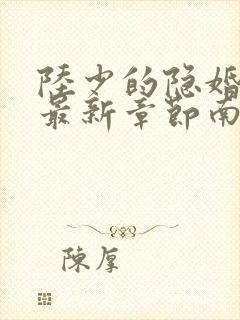 陸少的隐婚
最新章節南
陳厚